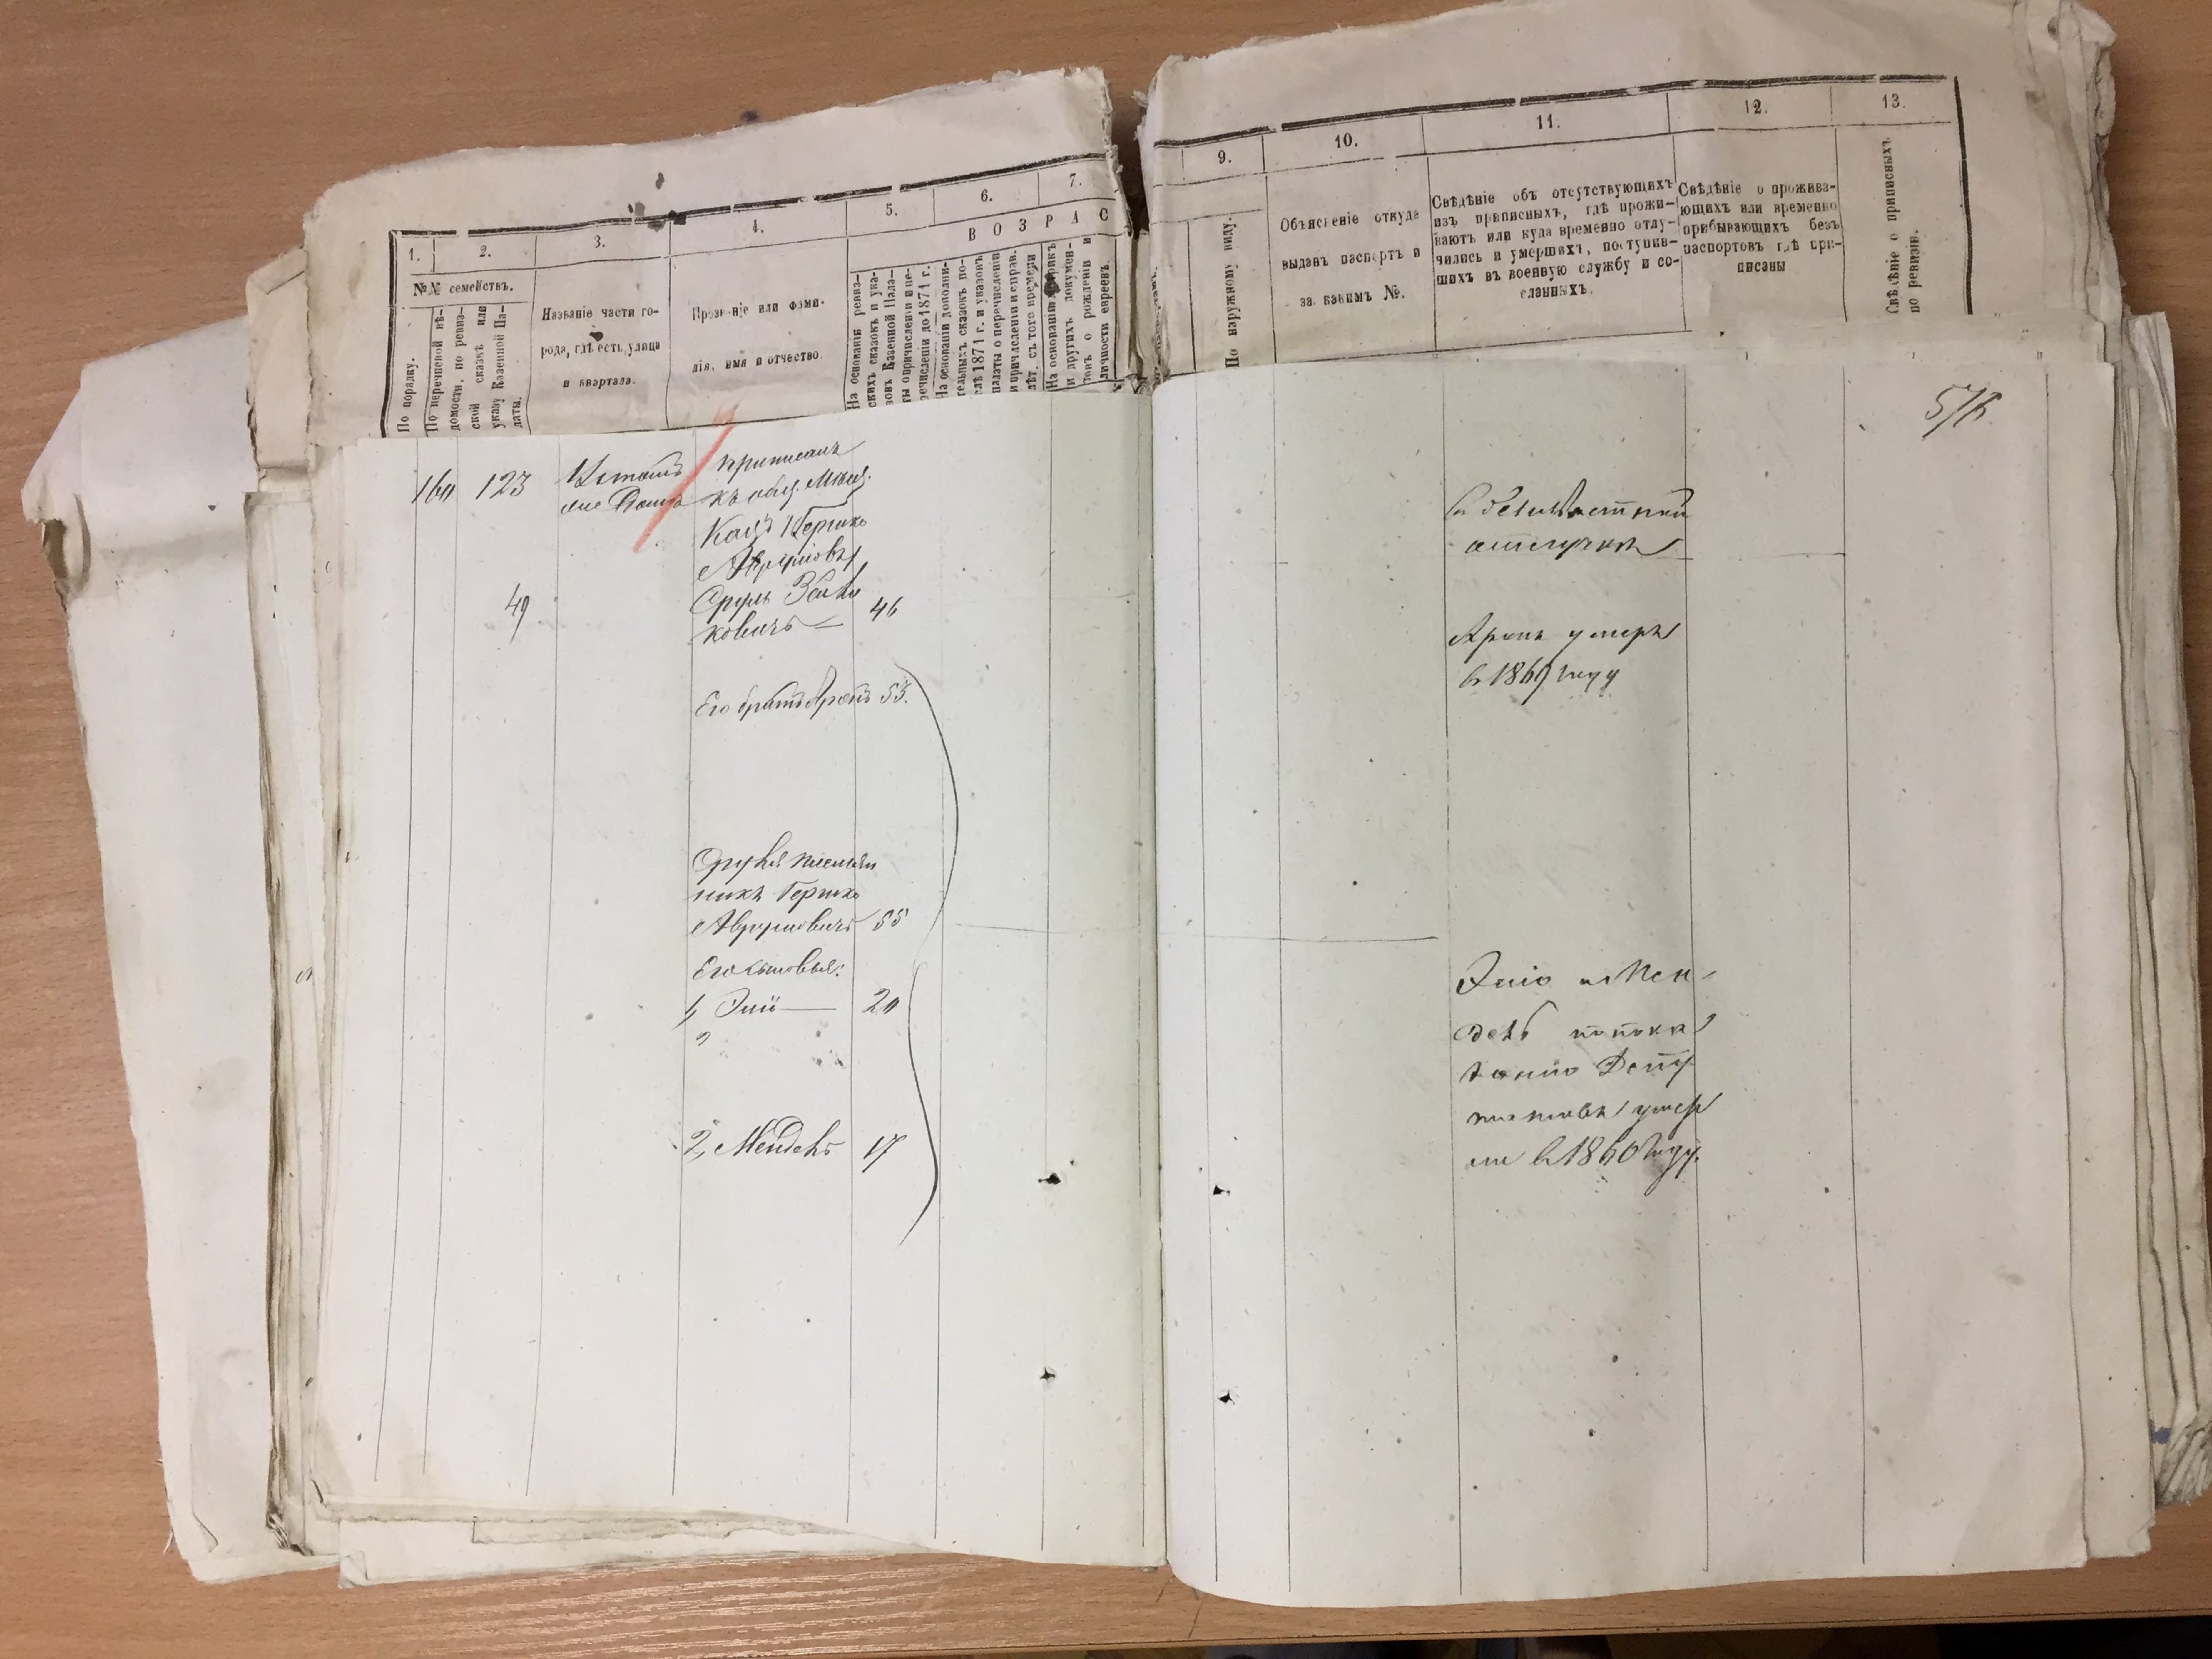 1.
2.
3.
4.
5.
6.
7.
№№ семействъ.
В О З Р А С
По порядку.
По перечневой вѣ-
домости, по ревиз-
ской сказкѣ или
указу Казенной Па-
латы.
Названіе части го-
рода, гдѣ есть, улица
и квартала.
Прозваніе или фами-
лія, имя и отчество.
На основаніи ревиз-
скихъ сказокъ и ука-
зовъ Казенной Пала-
ты о причисленіи и пе-
речисленіи до 1871 г.
На основаніи дополни-
тельныхъ сказокъ по-
слѣ 1871 г. и указовъ
палаты о перечисленіи
и причисленіи и справ.
лѣт. съ того времени
На основаніи метрикъ
и другихъ докумен-
товъ о рожденіи и
личности евреевъ.
9.
10.
11.
12.
13.
По наружному виду.
Объясненіе откуда
выданъ паспортъ и
за какимъ №.
Свѣдѣніе объ отсутствующихъ
изъ приписныхъ, гдѣ прожи-
ваютъ или куда временно отлу-
чились и умершихъ, поступив-
шихъ въ военную службу и со-
сланныхъ.
Свѣдѣніе о прожива-
ющихъ или временно
прибывающихъ безъ
паспортовъ гдѣ при-
писаны
Свѣдѣніе о приписныхъ
по ревизіи.
160 123
приписанъ
къ общ.
Гершко
49
Сруль
ковичъ — 46
Его братъ Аронъ 53.
Сруля племян
никъ Гершко
Авруновичъ 55
Его сыновья:
1, Элій — 20
2, Мендель 17
въ безизвѣстной
отлучкѣ
Аронъ умеръ
въ 1869 году
Элію и Мен
дель по пока
занію Депу
татовъ умер
ли въ 1860 году.